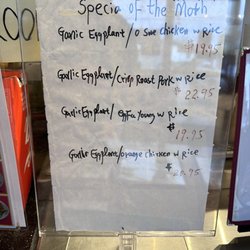 Special of the Moth
Garlic Eggplant/ o Sue chicken w Rice
$19.95
Garlic Eggplant/Crisp Roast Pork w Rice
$22.95
Garlic Eggplant/ Egg Foo Young w Rice
$19.95
Garlic Eggplant/orange chicken w Rice
$20.95